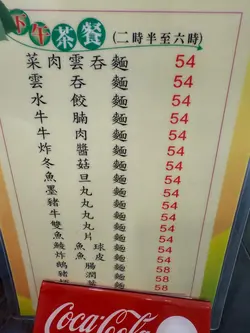 下午茶餐 (二時半至六時)
菜肉雲吞麵 54
雲吞麵 54
水餃麵 54
牛腩麵 54
牛肉麵 54
炸醬麵 54
冬菇麵 54
魚旦麵 54
墨丸麵 54
豬丸麵 54
牛丸麵 54
雙丸麵 54
魚片麵 54
鯪魚球麵 54
炸魚皮麵 54
鵝腸麵 58
豬潤麵 58
Coca-Cola